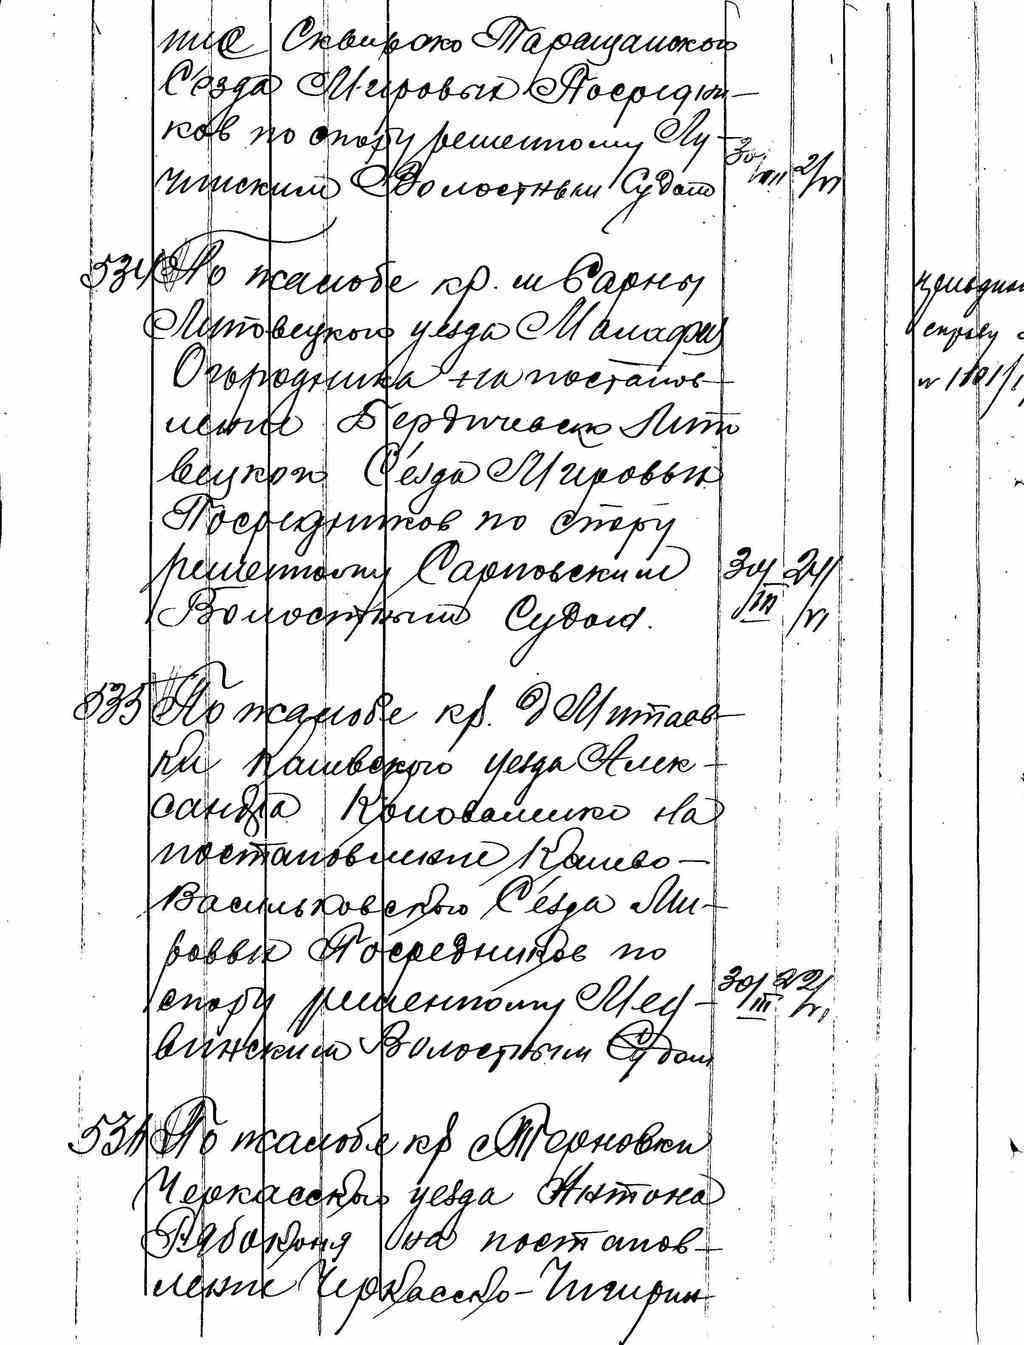 ние Сквирско Таращанского
Съезда Мировых Посредни-
ков по спору решенному Лу-
чинским Волостным Судом 30/III 2/VI
534 По жалобе кр. м Сарны
Липовецкого уезда Малафея
Огородника на постанов-
ление Бердическ Липо
вецкого Съезда Мировых
Посредников по спору
решенному Сарновским 30/III 24/VI
Волостным Судом.
справу
№ 1101/1
535 По жалобе кр. д Митаев-
ки Каневского уезда Алек-
сандра Коноваленко на
постановление Канево-
Васильковского Съезда Ми-
ровых Посредников по
спору решенному Мед- 30/III 22/VI
винским Волостным Судом
536 По жалобе кр с Терновки
Черкасского уезда Антона
Рябоконя на постанов-
ление Черкасско-Чигирин